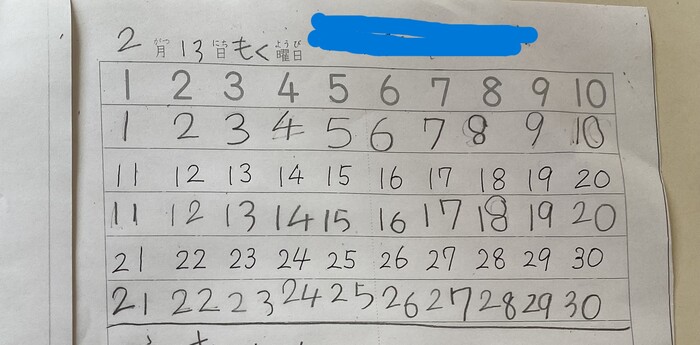 2月13日もく曜日
がつ にち ようび
1 2 3 4 5 6 7 8 9 10
1 2 3 4 5 6 7 8 9 10
11 12 13 14 15 16 17 18 19 20
11 12 13 14 15 16 17 18 19 20
21 22 23 24 25 26 27 28 29 30
21 22 23 24 25 26 27 28 29 30